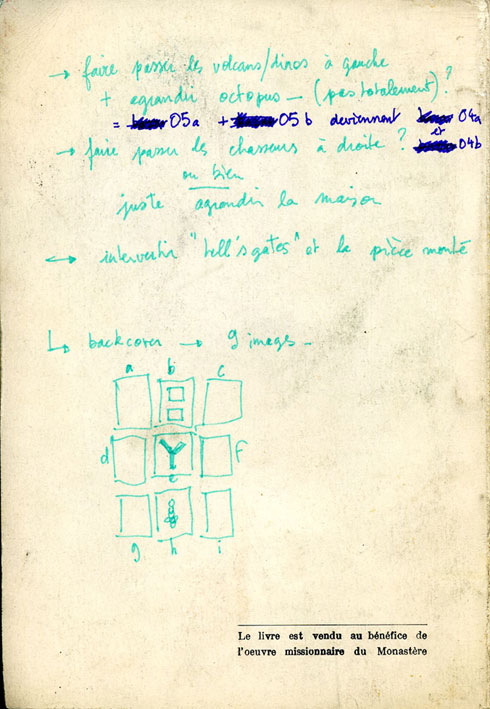 → faire passer les volcans/dinos à gauche
+ agrandir octopus — (pas totalement) ?
= 05a + 05b deviennent 04a
et
→ faire passer les chasseurs à droite ? 04b
ou bien
juste agrandir la maison
↔ intervertir "hell's gates" et la pièce monté
↳ backcover → 9 images -
a b c
d Y F
e
g h i
Le livre est vendu au bénéfice de
l'oeuvre missionnaire du Monastère